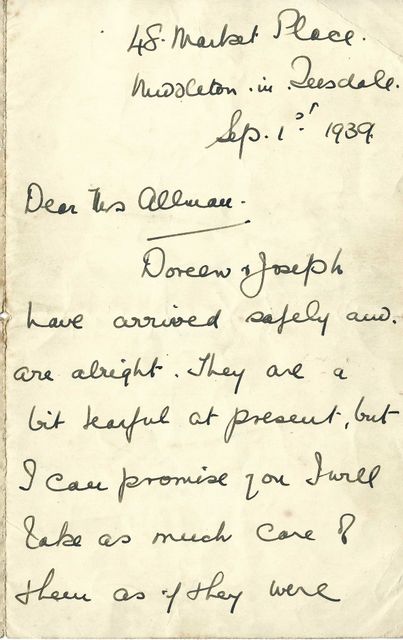 48. Market Place.
Middleton. in. Teesdale.
Sep. 1st. 1939.
Dear Mrs Allman.
Doreen & Joseph
have arrived safely and.
are alright. They are a
bit tearful at present, but
I can promise you I will
take as much care of
them as if they were